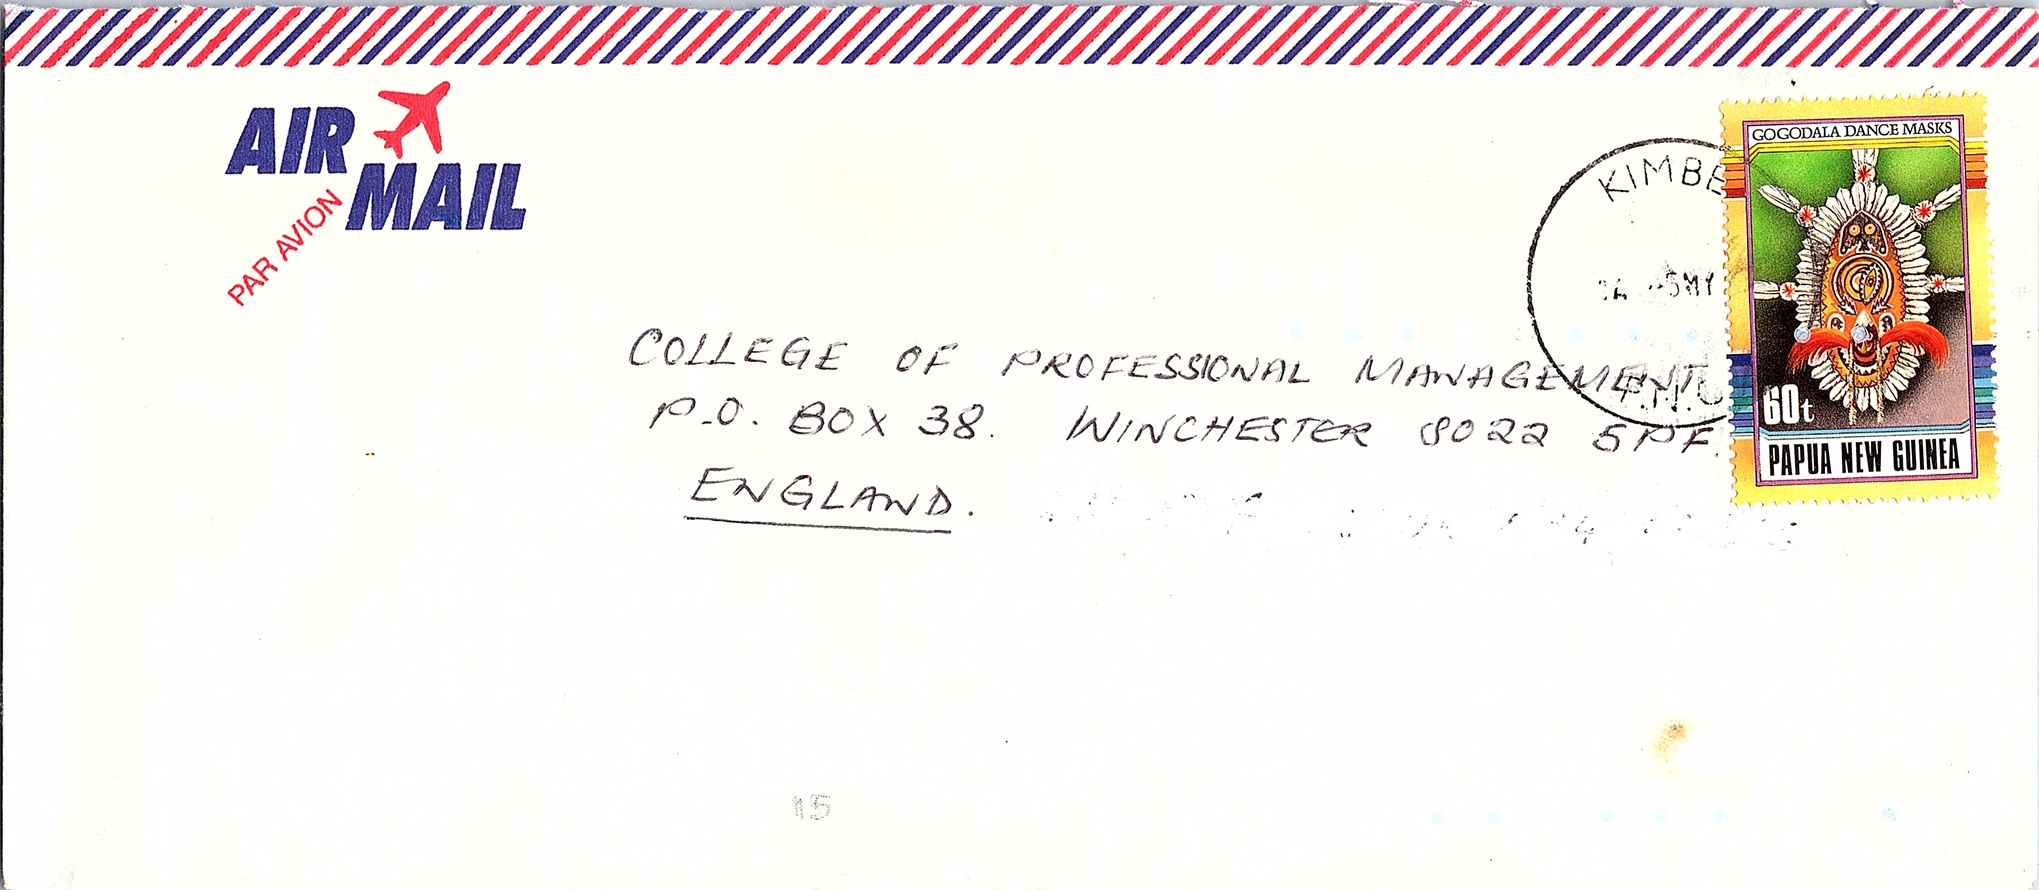 AIR
MAIL
PAR AVION
GOGODALA DANCE MASKS
KIMBE
5MY
P.N.G
60t
PAPUA NEW GUINEA
COLLEGE OF PROFESSIONAL MANAGEMENT
P.O. BOX 38. WINCHESTER SO22 5PF.
ENGLAND.
15